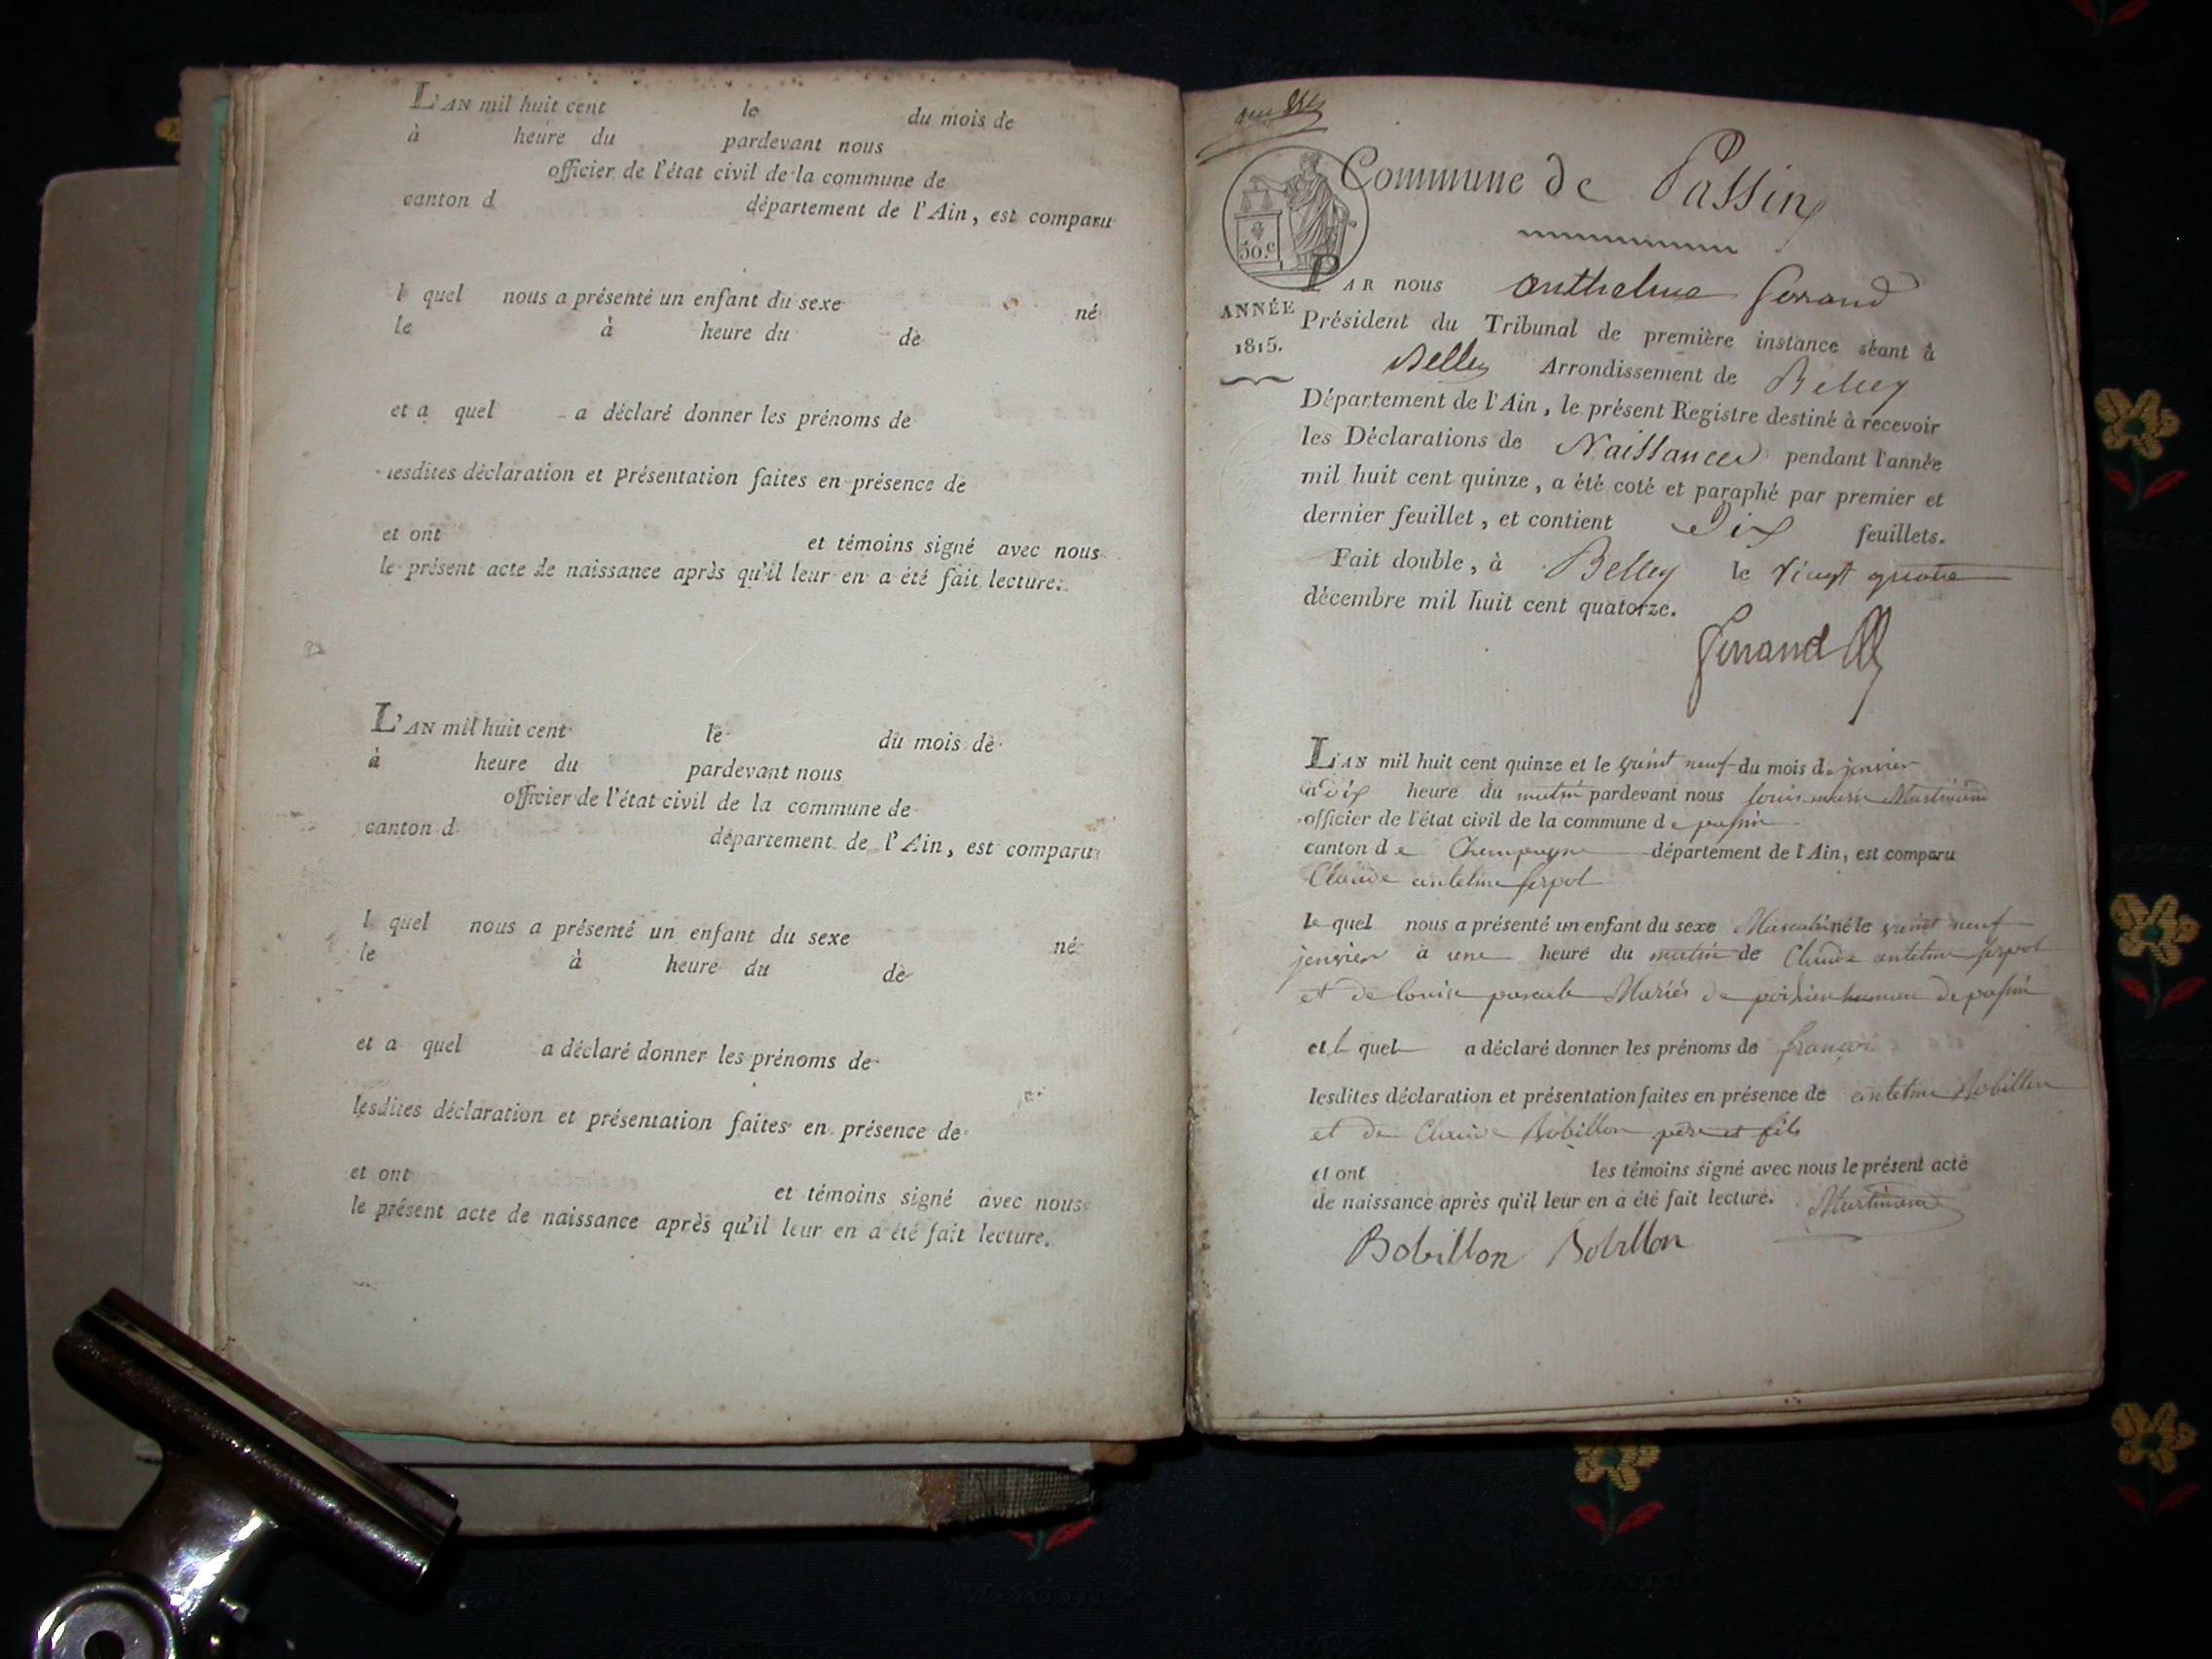 L'AN mil huit cent le du mois de
à heure du pardevant nous
officier de l'état civil de la commune de
canton d département de l'Ain, est comparu
l quel nous a présenté un enfant du sexe né
le à heure du de
et a quel a déclaré donner les prénoms de
lesdites déclaration et présentation faites en présence de
et ont et témoins signé avec nous
le présent acte de naissance après qu'il leur en a été fait lecture.
L'AN mil huit cent le du mois de
à heure du pardevant nous
officier de l'état civil de la commune de
canton d département de l'Ain, est comparu
l quel nous a présenté un enfant du sexe né
le à heure du de
et a quel a déclaré donner les prénoms de
lesdites déclaration et présentation faites en présence de
et ont et témoins signé avec nous
le présent acte de naissance après qu'il leur en a été fait lecture.
Commune de Passin
50.c
ANNÉE
1815.
PAR nous Anthelme
Président du Tribunal de première instance séant à
Belley Arrondissement de Belley
Département de l'Ain, le présent Registre destiné à recevoir
les Déclarations de Naissances pendant l'année
mil huit cent quinze, a été coté et paraphé par premier et
dernier feuillet, et contient Dix feuillets.
Fait double, à Belley le vingt quatre
décembre mil huit cent quatorze.
L'AN mil huit cent quinze et le vint neuf du mois de jenvier
à dix heure du matin pardevant nous louis marie Martinand
officier de l'état civil de la commune de passin
canton de Champagne département de l'Ain, est comparu
Claude antelme serpol
le quel nous a présenté un enfant du sexe Masculin né le vint neuf
jenvier à une heure du matin de Claude antelme serpol
et de louise pascale Mariés de de passin
et le quel a déclaré donner les prénoms de françois
lesdites déclaration et présentation faites en présence de antelme Bobillon
et de Claude Bobillon père et fils
et ont les témoins signé avec nous le présent acte
de naissance après qu'il leur en a été fait lecture. Martinand
Bobillon Bobillon